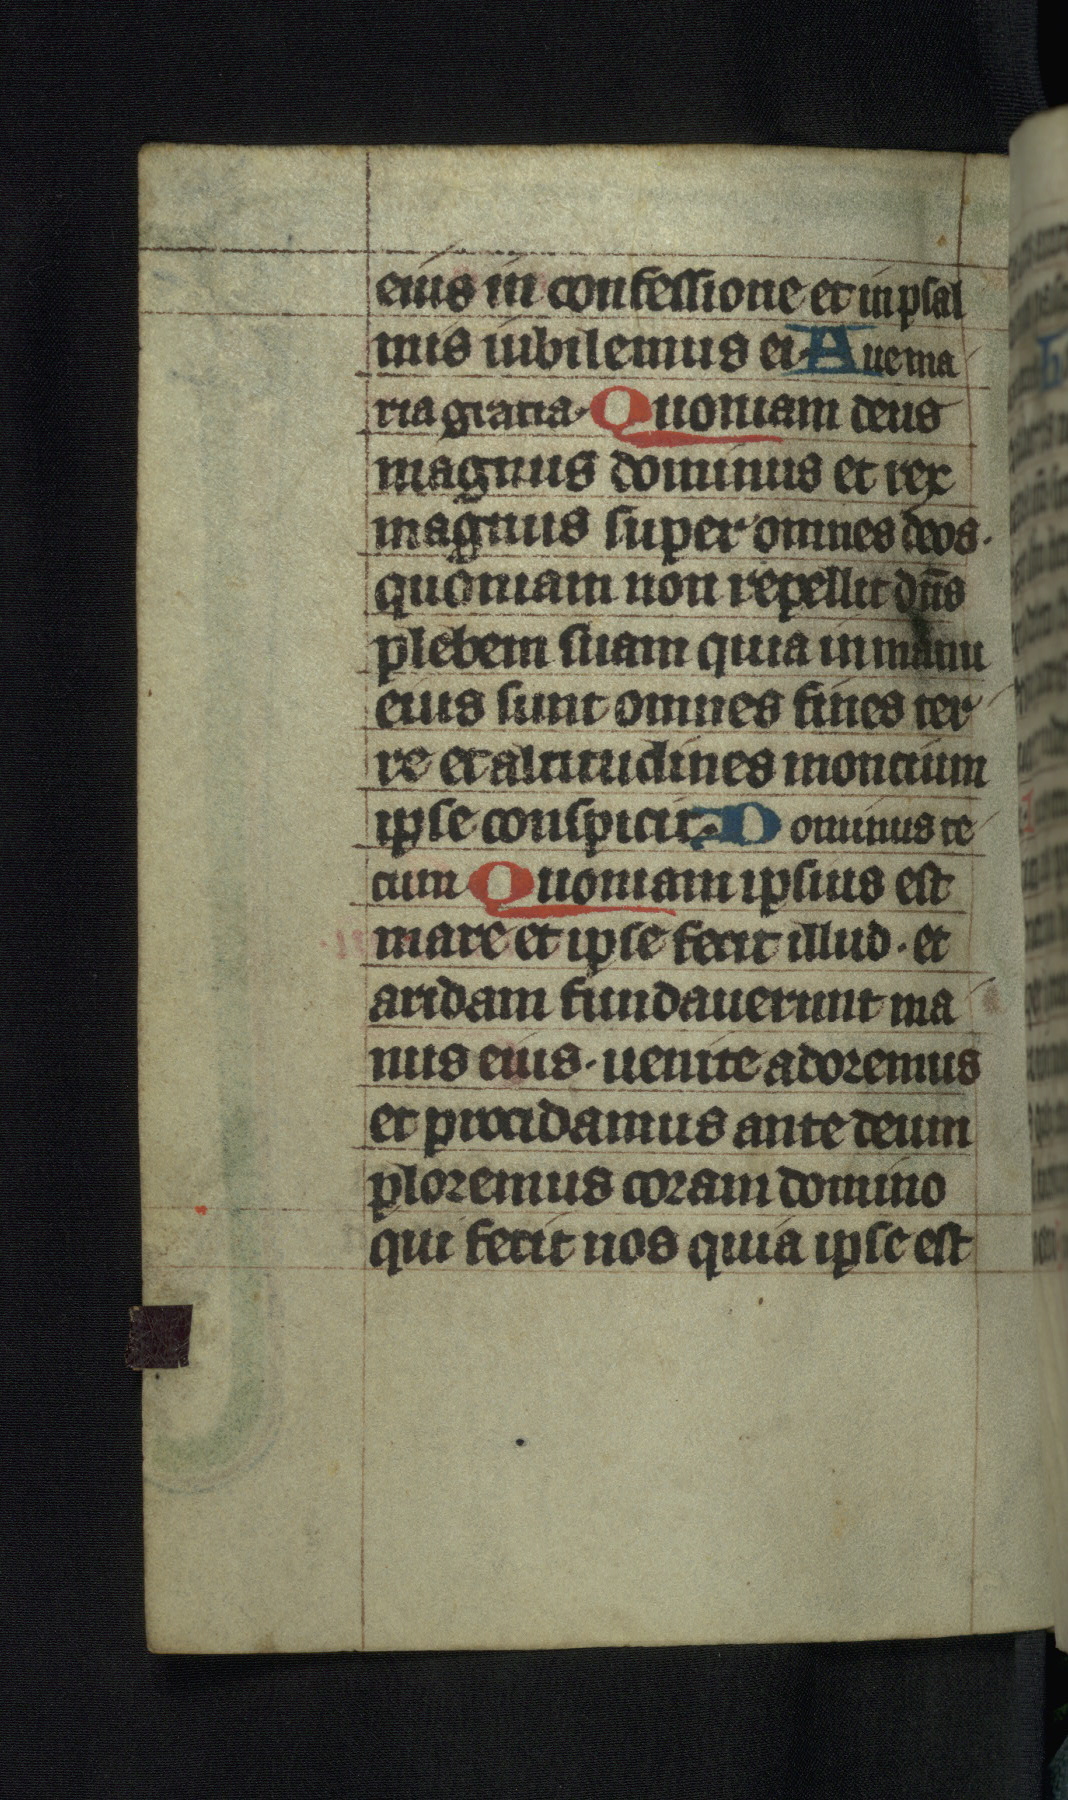 eius in confessione et in psal
mis iubilemus ei. Aue ma
ria gratia. Quoniam deus
magnus dominus et rex
magnus super omnes deos.
quoniam non repellit dn̄s
plebem suam quia in manu
eius sunt omnes fines ter
re et altitudines moncium
ipse conspicit. Dominus te
cum Quoniam ipsius est
mare et ipse fecit illud. et
aridam fundauerunt ma
nus eius. uenite adoremus
et procidamus ante deum
ploremus coram domino
qui fecit nos quia ipse est